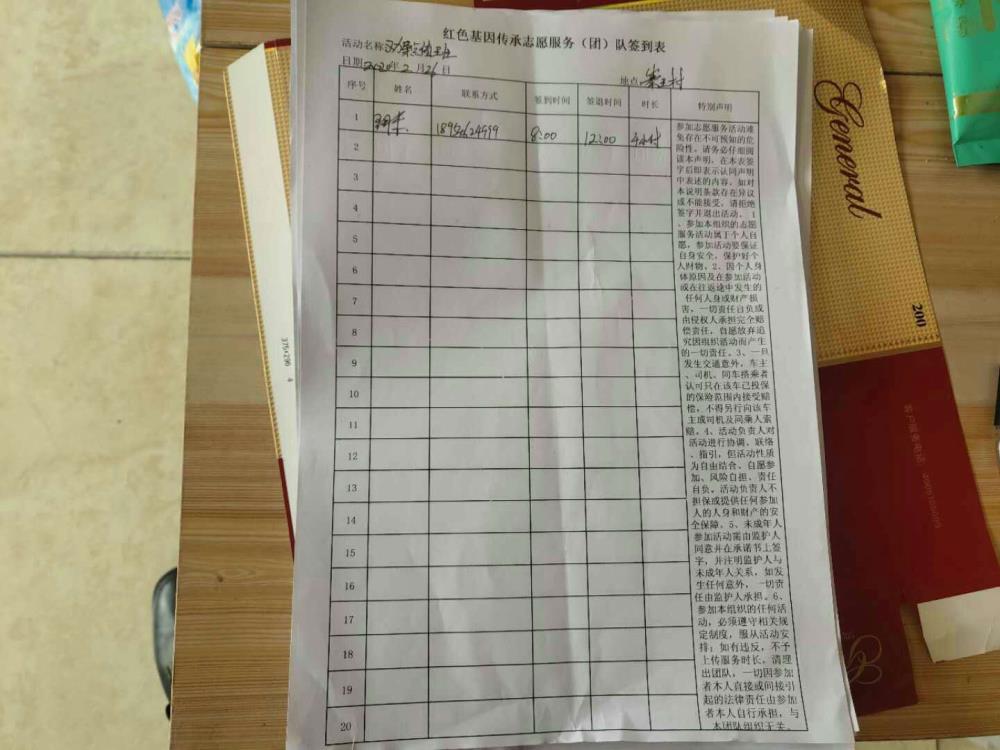 红色基因传承志愿服务（团）队签到表
活动名称
日期2020年2月26日
地点
序号 姓名 联系方式 签到时间 签退时间 时长 特别声明
1 8:00 12:00 4小时
2
3
4
5
6
7
8
9
10
11
12
13
14
15
16
17
18
19
20
参加志愿服务活动难
免存在不可预知的危
险性，请务必仔细阅
读本声明，在本表签
字后即表示认同声明
中表述的内容。如对
本说明条款存在异议
或不能接受，请拒绝
签字并退出活动。1
、参加本组织的志愿
服务活动属于个人自
愿，参加活动要保证
自身安全，保护好个
人财物。2、因个人身
体原因及在参加活动
或在往返途中发生的
任何人身或财产损
害，一切责任自负或
由侵权人承担完全赔
偿责任，自愿放弃追
究因组织活动而产生
的一切责任。3、一旦
发生交通意外，车主
、司机、同车搭乘者
认可只在该车已投保
的保险范围内接受赔
偿，不得另行向该车
主或司机及同乘人索
赔。4、活动负责人对
活动进行协调、联络
、指引，但活动性质
为自由结合、自愿参
加、风险自担、责任
自负。活动负责人不
担保或提供任何参加
人的人身和财产的安
全保障。5、未成年人
参加活动需由监护人
同意并在承诺书上签
字，并注明监护人与
未成年人关系，如发
生任何意外，一切责
任由监护人承担。6、
参加本组织的任何活
动，必须遵守相关规
定制度，服从活动安
排；如有违反，不予
上传服务时长，清理
出团队，一切因参加
者本人直接或间接引
起的法律责任由参加
者本人自行承担，与
本团队组织无关。
General
200
375*296 4
客户服务电话：